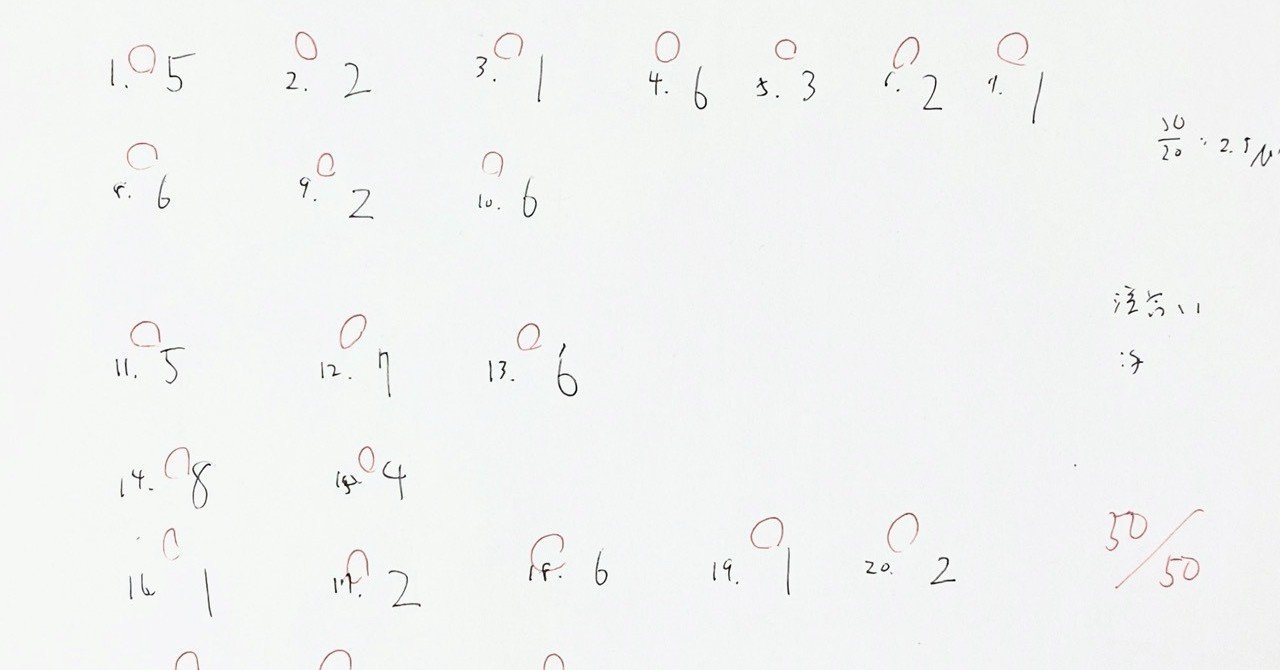 1. 5 2. 2 3. 1 4. 6 5. 3 6. 2 7. 1
50/20 : 2.5
8. 6 9. 2 10. 6
11. 5 12. 7 13. 6
14. 8 15. 4
16. 1 17. 2 18. 6 19. 1 20. 2
50/50